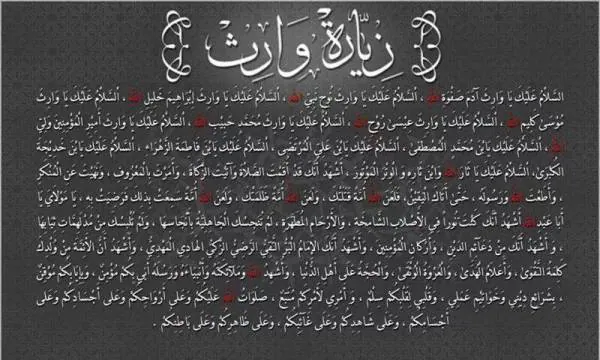 زِيَارَة وَارِث
اَلسَّلامُ عَلَيْكَ يَا وَارِثَ آدَمَ صَفْوَةِ الله ، اَلسَّلامُ عَلَيْكَ يَا وَارِثَ نُوح نَبِيِّ الله ، اَلسَّلامُ عَلَيْكَ يَا وَارِثَ إِبْرَاهِيمَ خَلِيلِ الله ، اَلسَّلامُ عَلَيْكَ يَا وَارِثَ
مُوسَى كَلِيمِ الله ، اَلسَّلامُ عَلَيْكَ يَا وَارِثَ عِيسَى رُوحِ الله ، اَلسَّلامُ عَلَيْكَ يَا وَارِثَ مُحَمَّد حَبِيبِ الله ، اَلسَّلامُ عَلَيْكَ يَا وَارِثَ أَمِيرِ المُؤْمِنِينَ وَلِيِّ
الله ، اَلسَّلامُ عَلَيْكَ يَا بْنَ مُحَمَّد المُصْطَفَى ، اَلسَّلامُ عَلَيْكَ يَا بْنَ عَلِيّ المُرْتَضَى ، اَلسَّلامُ عَلَيْكَ يَا بْنَ فَاطِمَة الزَّهْرَاء ، اَلسَّلامُ عَلَيْكَ يَا بْنَ خَدِيجَة
الكُبْرَى ، اَلسَّلامُ عَلَيْكَ يَا ثَارَ الله وَابْنَ ثَارِهِ وَ الوِتْرَ المَوْتُور ، أَشْهَدُ أَنَّكَ قَدْ أَقَمْتَ الصَّلاةَ وَآتَيْتَ الزَّكَاةَ ، وَأَمَرْتَ بِالْمَعْرُوفِ ، وَنَهَيْتَ عَنِ المُنْكَرِ
، وَأَطَعْتَ الله وَرَسُولَهُ ، حَتَّى أَتَاكَ اليَقِينُ ، فَلَعَنَ الله أُمَّةً قَتَلَتْكَ ، وَلَعَنَ الله أُمَّةً ظَلَمَتْكَ ، وَلَعَنَ الله أُمَّةً سَمِعَتْ بِذَلِكَ فَرَضِيَتْ بِهِ ، يَا مَوْلايَ يَا
أَبَا عَبْدِ الله أَشْهَدُ أَنَّكَ كُنْتَ نُوراً فِي الأَصْلابِ الشَّامِخَةِ ، وَالأَرْحَامِ المُطَهَّرَةِ ، لَمْ تُنَجِّسْكَ الجَاهِلِيَّةُ بِأَنْجَاسِهَا ، وَلَمْ تُلْبِسْكَ مِنْ مُدْلَهِمَّاتِ ثِيَابِهَا
، وَ أَشْهَدُ أَنَّكَ مِنْ دَعَائِمِ الدِّينِ ، وَأَرْكَانِ المُؤْمِنِينَ ، وَأَشْهَدُ أَنَّكَ الإِمَامُ البَرُّ التَّقِيُّ الرَّضِيُّ الزَّكِيُّ الهَادِي المَهْدِيُّ ، وَأَشْهَدُ أَنَّ الأَئِمَّةَ مِنْ وُلْدِكَ
كَلِمَةُ التَّقْوَى ، وَأَعْلامُ الهُدَى ، وَالعُرْوَةُ الوُثْقَى ، وَالحُجَّةُ عَلَى أَهْلِ الدُّنْيَا ، وَأُشْهِدُ الله وَمَلائِكَتَهُ وَأَنْبِيَاءَهُ وَرُسُلَهُ أَنِّي بِكُمْ مُؤْمِنٌ ، وَبِإِيَابِكُمْ مُوقِنٌ
، بِشَرَائِعِ دِينِي وَخَوَاتِيمِ عَمَلِي ، وَقَلْبِي لِقَلْبِكُمْ سِلْمٌ ، وَ أَمْرِي لأَمْرِكُمْ مُتَّبِعٌ ، صَلَوَاتُ الله عَلَيْكُمْ وَعَلَى أَرْوَاحِكُمْ وَعَلَى أَجْسَادِكُمْ وَعَلَى
أَجْسَامِكُمْ ، وَعَلَى شَاهِدِكُمْ وَعَلَى غَائِبِكُمْ ، وَعَلَى ظَاهِرِكُمْ وَعَلَى بَاطِنِكُمْ .